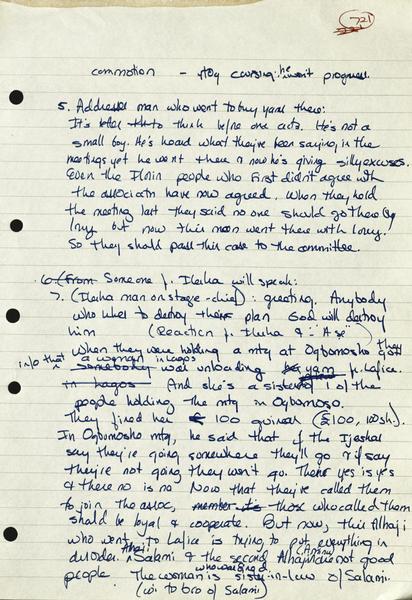 721
commotion - stay causing: he won't progress.
5. Addresses man who went to buy yams there:
It's better to think before one acts. He's not a
small boy. He's heard what they've been saying in the
meetings yet he went there & now he's giving silly excuses.
Even the Ilorin people who first didn't agree with
the association have now agreed. When they held
the meeting last they said no one should go there by
lorry but now this man went there with lorry.
So they should pass this case to the committee.
6. (From Someone f. Ilesha will speak:
7. (Ilesha man on stage - chief): greeting. Anybody
who likes to destroy their plan God will destroy
him (Reaction f. Ilesha &
When they were holding a mtg at Ogbomosho they got
info that a woman in Lagos was unloading yam f. Lafia.
in Lagos And she's a sister of 1 of the
people holding the mtg in Ogbomoso.
They fined her 100 guineas (£100, 100sh).
In Ogbomosho mtg, he said that if the Ijeshas
say they're going somewhere they'll go & if say
they're not going they won't go. Their yes is yes
& there no is no. Now that they've called them
to join the assoc, those who called them
should be loyal & cooperate. But now, this Alhaji
who went to Lafia is trying to put everything in
disorder. Alhaji Salami & the second Alhaji are not good
people. The woman who was fined is sister-in-law of Salami.
(wi. to bro of Salami)